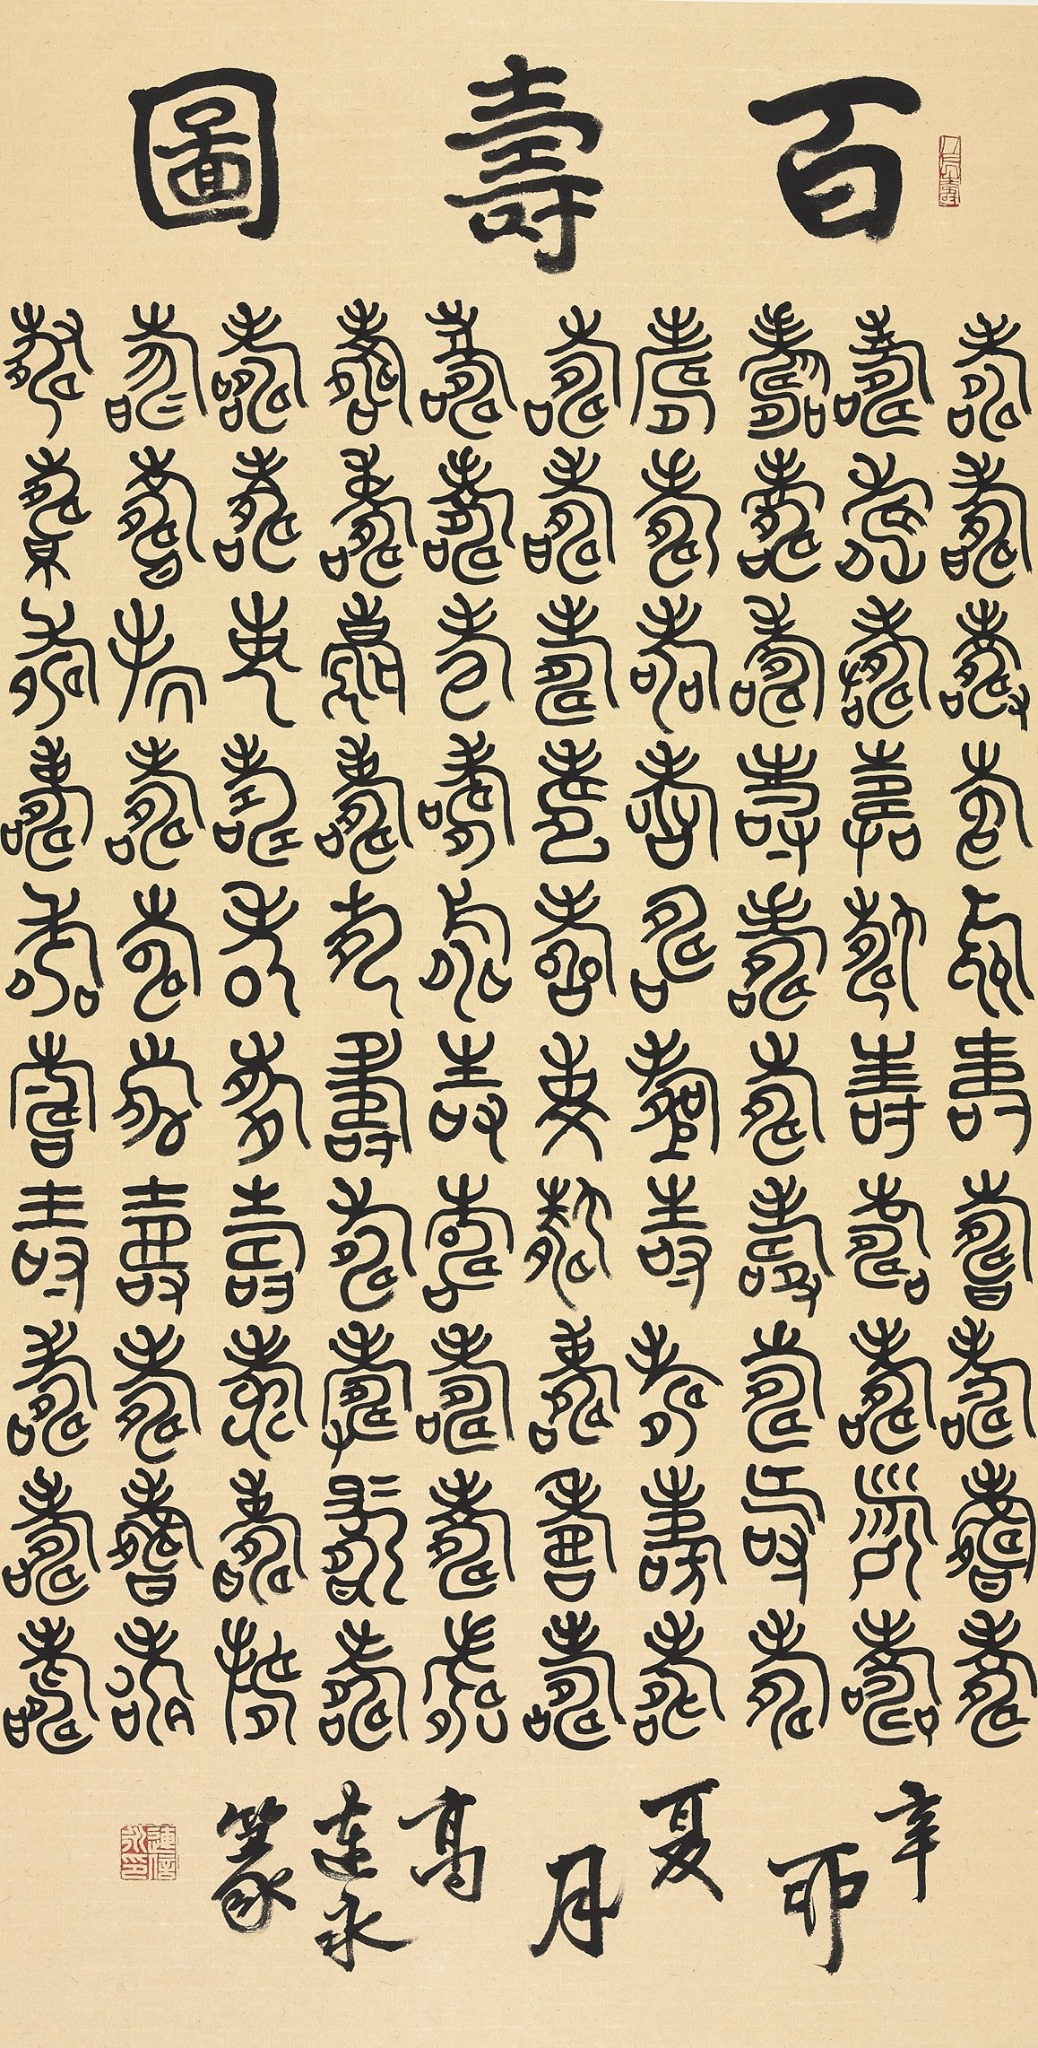 百壽圖
壽壽壽壽壽壽壽壽壽壽
壽壽壽壽壽壽壽壽壽壽
壽壽壽壽壽壽壽壽壽壽
壽壽壽壽壽壽壽壽壽壽
壽壽壽壽壽壽壽壽壽壽
壽壽壽壽壽壽壽壽壽壽
壽壽壽壽壽壽壽壽壽壽
壽壽壽壽壽壽壽壽壽壽
壽壽壽壽壽壽壽壽壽壽
壽壽壽壽壽壽壽壽壽壽
辛卯夏月高連永篆